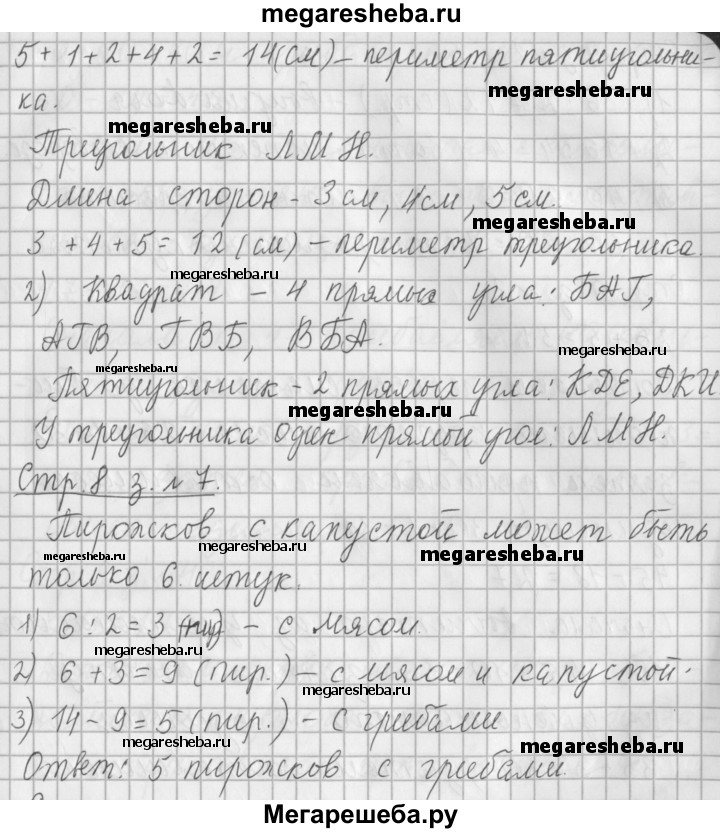 megaresheba.ru
5 + 1 + 2 + 4 + 2 = 14 (см) – периметр пятиугольни-
megaresheba.ru
ка.
megaresheba.ru
Треугольник ЛМН.
Длина сторон - 3 см, 4 см, 5 см.
megaresheba.ru
3 + 4 + 5 = 12 (см) – периметр треугольника.
megaresheba.ru
2) Квадрат – 4 прямых угла: БАГ,
АГВ, ГВБ, ВБА.
megaresheba.ru
megaresheba.ru
Пятиугольник - 2 прямых угла: КДЕ, ДКИ
megaresheba.ru
У треугольника один прямой угол: ЛМН.
Стр. 8 з. № 7.
Пирожков с капустой может быть
megaresheba.ru
megaresheba.ru
megaresheba.ru
только 6 штук.
1) 6 : 2 = 3 – с мясом.
megaresheba.ru
2) 6 + 3 = 9 (пир.) – с мясом и капустой.
megaresheba.ru
3) 14 - 9 = 5 (пир.) – с грибами
megaresheba.ru
megaresheba.ru
Ответ: 5 пирожков с грибами.
Мегарешеба.ру